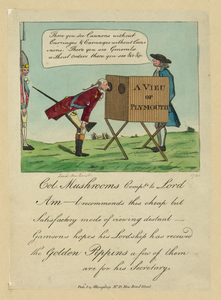 There you see Cannons without
Carriages & Carriages without Can=
=nons. There you see Generals
without Orders there you see &c &c.
A VIEW
OF
PLYMOUTH
Col. Mushrooms Compts. to Lord
Am— recommends this cheap but
Satisfactory mode of viewing distant
Garrisons hopes his Lordship has receiv'd
the Golden Pippins a few of them
are for his Secretary.